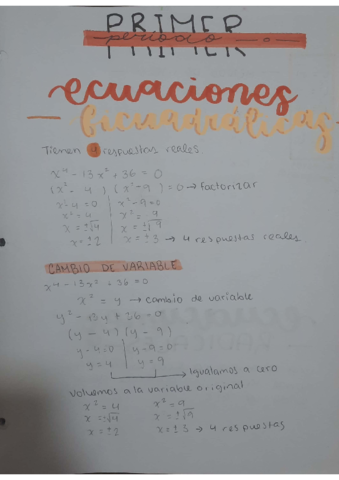 PRIMER
periodo
ecuaciones
bicuadráticas
Tienen 4 respuestas reales
x⁴ - 13x² + 36 = 0
(x² - 4)(x² - 9) = 0 → factorizar
x² - 4 = 0 | x² - 9 = 0
x² = 4 | x² = 9
x = ±√4 | x = ±√9
x = ±2 | x = ±3 → 4 respuestas reales
CAMBIO DE VARIABLE
x⁴ - 13x² + 36 = 0
x² = y → cambio de variable
y² - 13y + 36 = 0
(y - 4)(y - 9)
y - 4 = 0 | y - 9 = 0
y = 4 | y = 9
→ Igualamos a cero
Volvemos a la variable original
x² = 4 x² = 9
x = ±√4 x = ±√9
x = ±2 x = ±3 → 4 respuestas